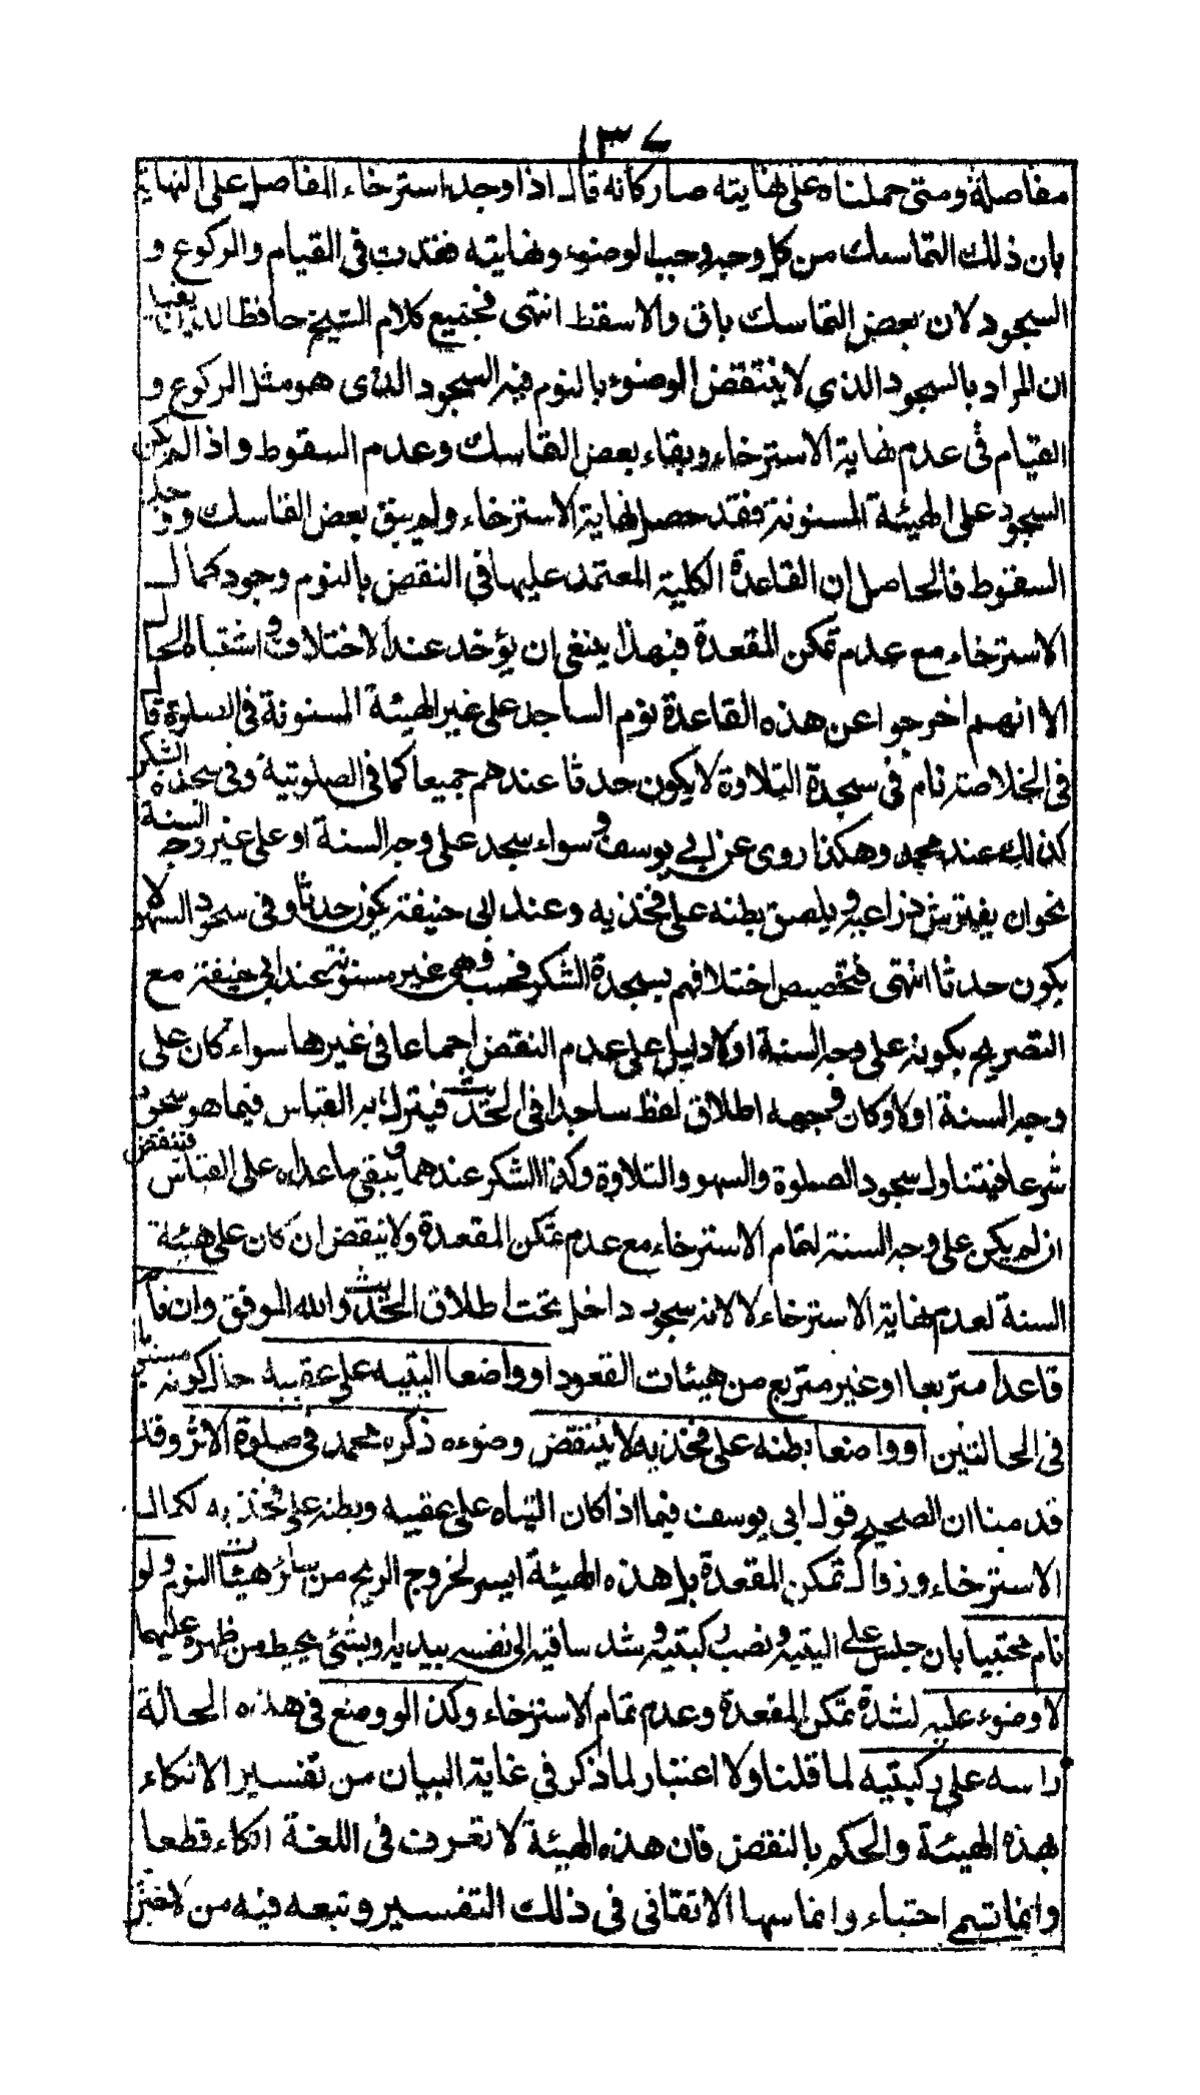 ١٣٧
مفاصله ومتى حملناه على نهايته صار كأنه قال اذا وجد استرخاء المفاصل على النهاية
بان ذلك التماسك من كل وجه وجب الوضوء ونهايته فقدت في القيام والركوع و
السجود لان بعض التماسك باق والا سقط انتهى فجميع كلام الشيخ حافظ الدين يفيد
ان المراد بالسجود الذي لا ينتقض الوضوء بالنوم فيه السجود الذى هو مثل الركوع و
القيام في عدم نهاية الاسترخاء وبقاء بعض التماسك وعدم السقوط واذا لم يكن
السجود على الهيئة المسنونة فقد حصل نهاية الاسترخاء ولم يبق بعض التماسك ووجد
السقوط فالحاصل ان القاعدة الكلية المعتمد عليها في النقض بالنوم وجود كمال
الاسترخاء مع عدم تمكن المقعدة فبهذا ينبغى ان يؤخذ عند الاختلاف واشتباه الحال
الا انهم اخرجوا عن هذه القاعدة نوم الساجد على غير الهيئة المسنونة في الصلوة قال
في الخلاصة نام في سجدة التلاوة لا يكون حدثا عندهم جميعا كما في الصلوتية وفي سجدة الشكر
كذلك عند محمد وهكذا روى عن ابي يوسف وسواء سجد على وجه السنة او على غير وجه السنة
نحو ان يفترش ذراعيه ويلصق بطنه على فخذيه وعند ابى حنيفة يكون حدثا وفي سجود السهو لا
يكون حدثا انتهى فتخصيص اختلافهم بسجدة الشكر فحسب وهي غير مسنونة عند ابي حنيفة مع
التصريح بكونه على وجه السنة اولا دليل على عدم النقض اجماعا في غيرها سواء كان على
وجه السنة اولا وكان وجهه اطلاق لفظ ساجدا في الحديث فيترك به القياس فيما هو سجود
شرعا فيتناول سجود الصلوة والسهو والتلاوة وكذا الشكر عندهما ويبقى ما عداه على القياس فينقض
ان لم يكن على وجه السنة لتمام الاسترخاء مع عدم تمكن المقعدة ولا ينقض ان كان على هيئة
السنة لعدم نهاية الاسترخاء لا لانه سجود داخل تحت اطلاق الحديث والله الموفق وان نام
قاعدا متربعا او غير متربع من هيئات القعود او واضعا اليتيه على عقبيه حال كونه مستويا
في الحالتين او واضعا بطنه على فخذيه لا ينتقض وضوءه ذكره محمد في صلوة الاثر وقد
قدمنا ان الصحيح قول ابي يوسف فيما اذا كان اليتاه على عقبيه وبطنه على فخذيه لكمال
الاسترخاء وزوال تمكن المقعدة بل هذه الهيئة ايسر لخروج الريح من سائر هيئات النوم ولو
نام محتبيا بان جلس على اليتيه ونصب ركبتيه وشد ساقيه الى نفسه بيديه او بشئ يحيط من ظهره عليهما
لا وضوء عليه لشدة تمكن المقعدة وعدم تمام الاسترخاء وكذا لو وضع في هذه الحالة
راسه على ركبتيه لما قلنا ولا اعتبار لما ذكر في غاية البيان من تفسير الاتكاء
بهذه الهيئة والحكم بالنقض فان هذه الهيئة لا تعرف في اللغة اتكاء قطعا
وانما تسمى احتباء وانما سها الاتقانى في ذلك التفسير وتبعه فيه من لا خبر